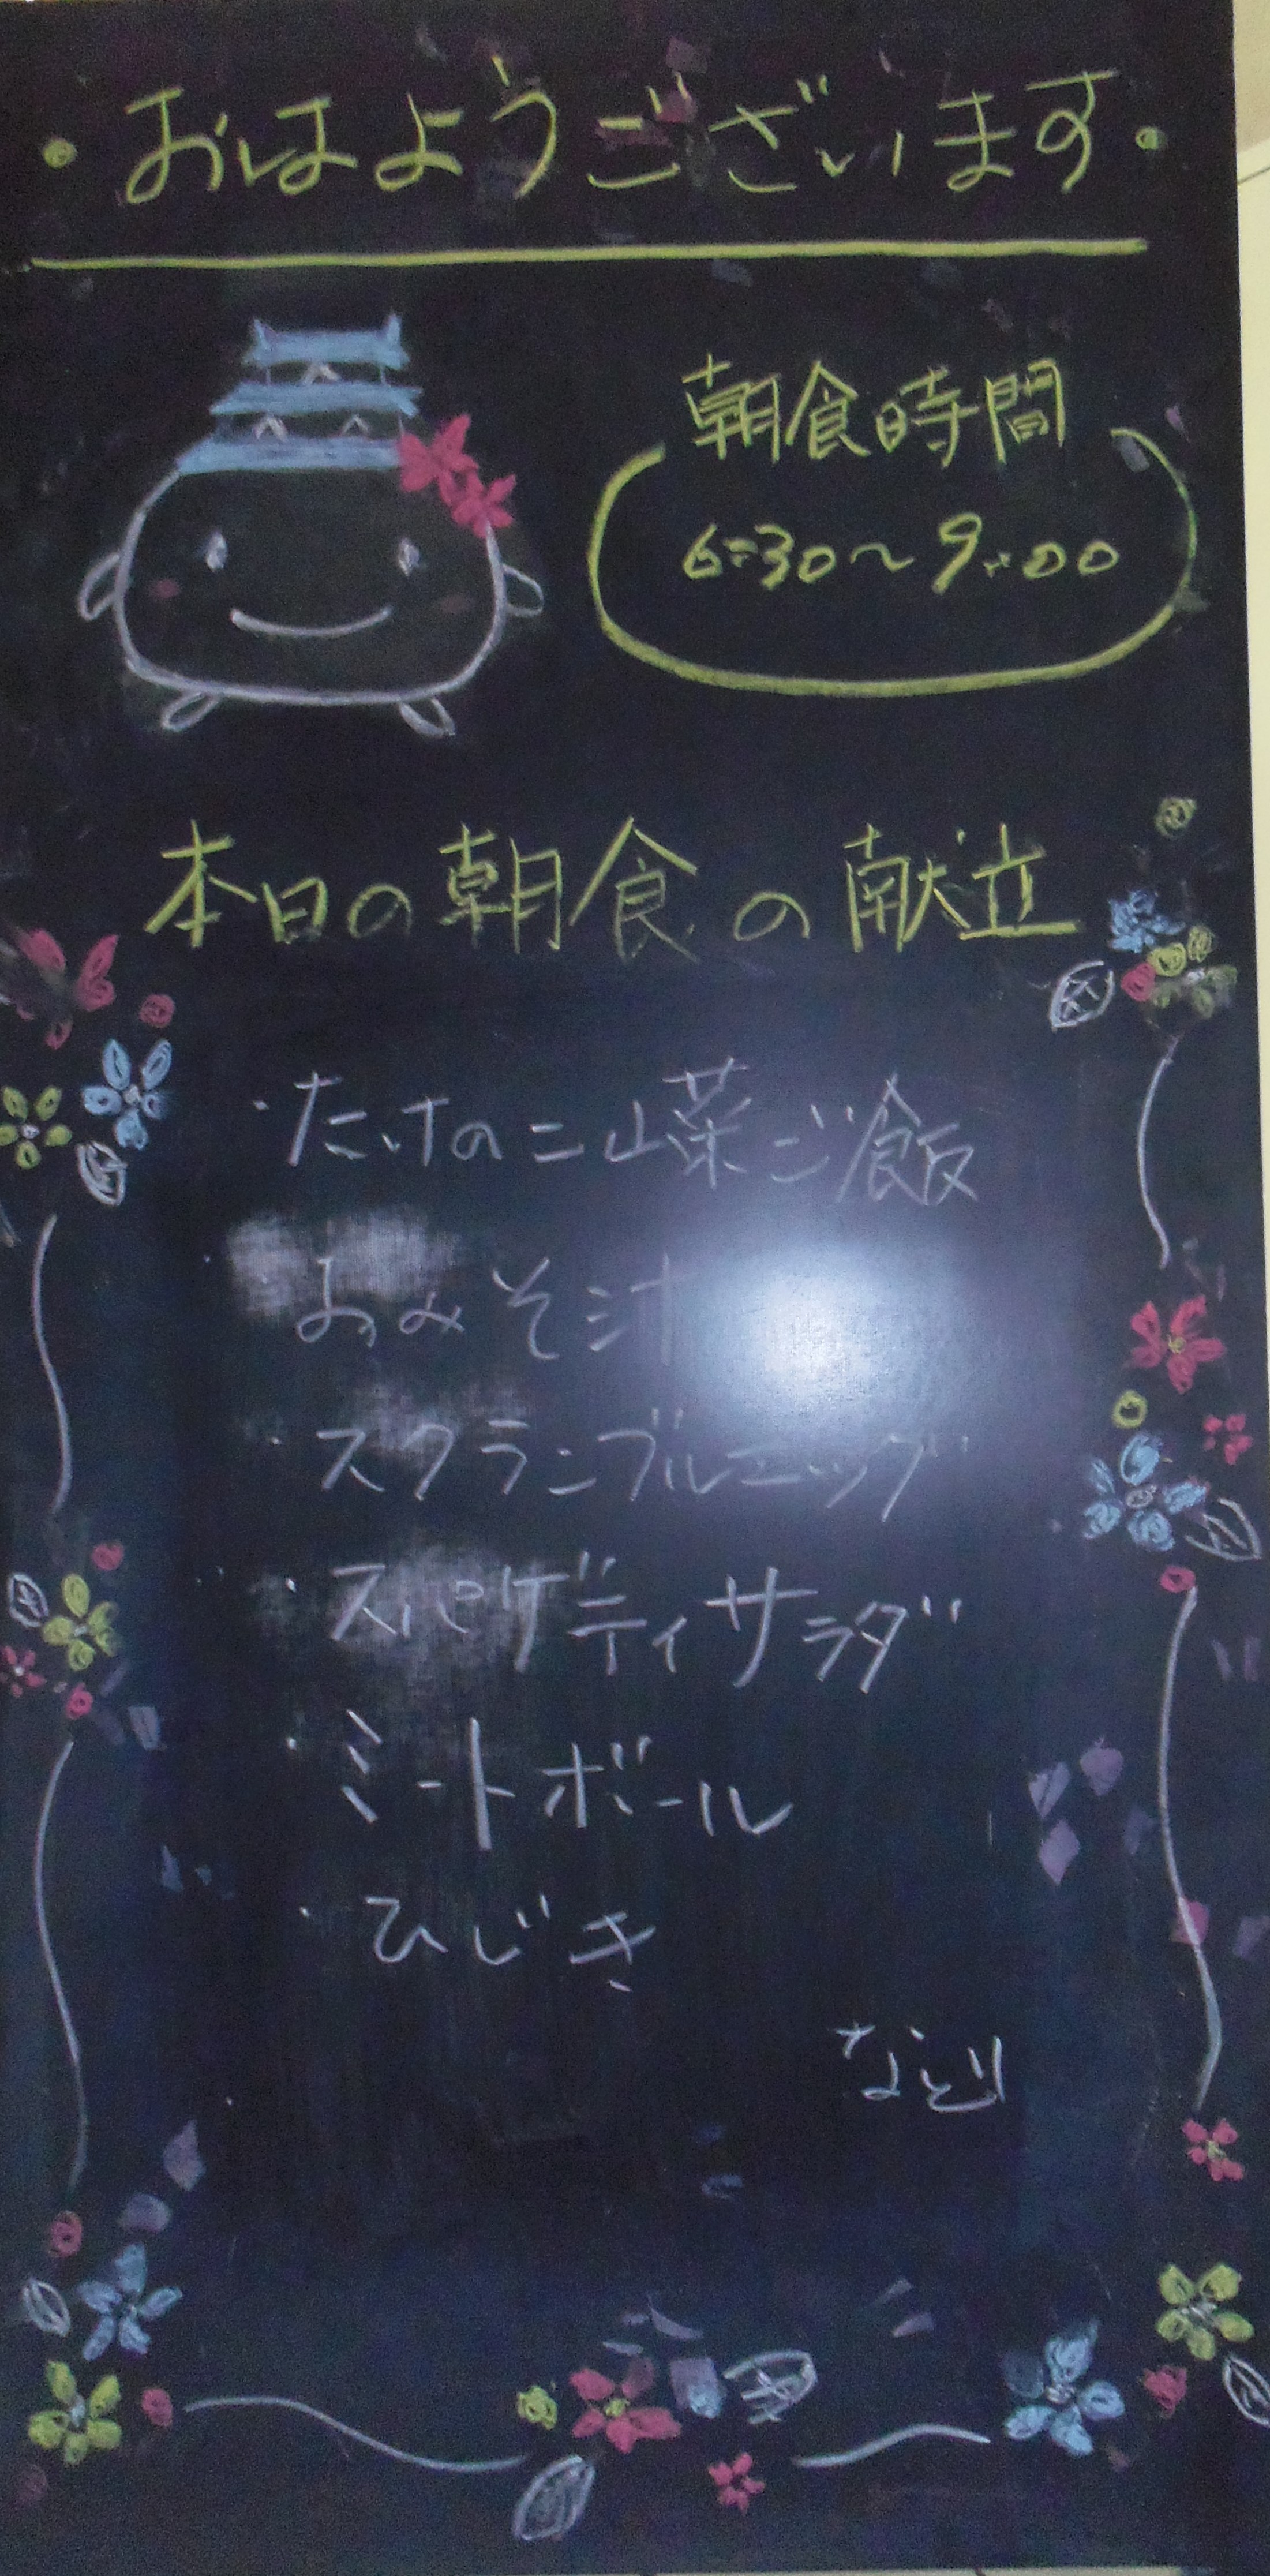 ・おはようございます・
朝食時間
6:30～9:00
本日の朝食の献立
・たけのこ山菜ご飯
・おみそ汁
・スクランブルエッグ
・スパゲティサラダ
・ミートボール
・ひじき
など